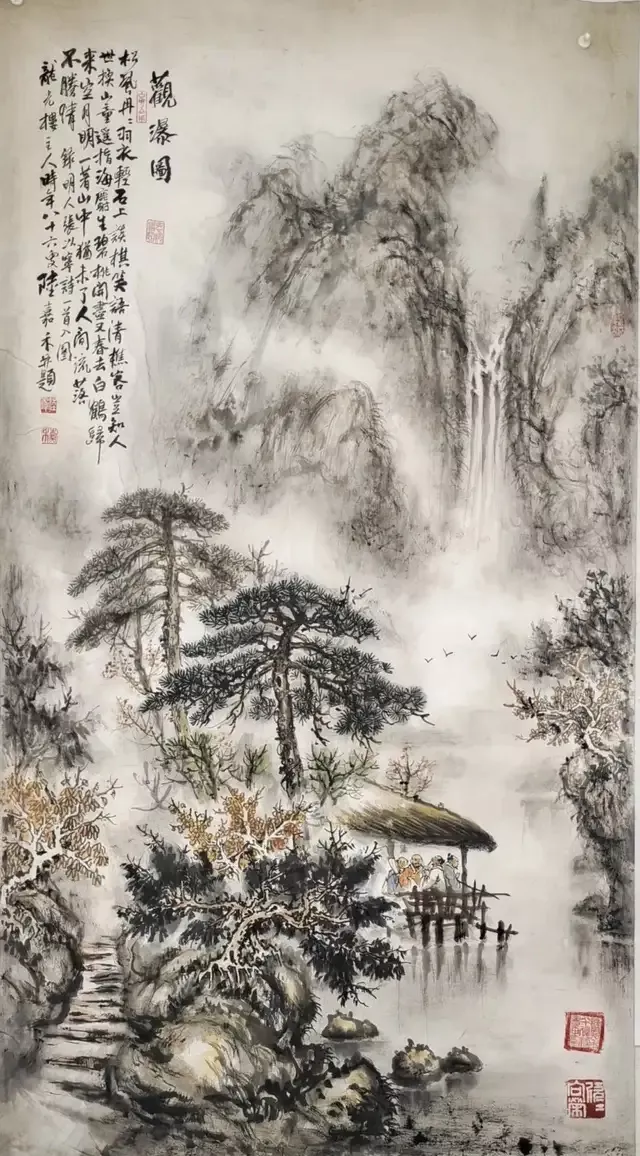 觀瀑圖
松風冉〻羽衣輕石上談棋笑語清樵客豈知人
世換山童遙指海塵生碧桃開盡又春去白鶴歸
來空月明一著山中猶未了人間流落
不勝情 錄明人張以寧詩一首入圖
龍樓主人時年八十六叟陸嘉并題